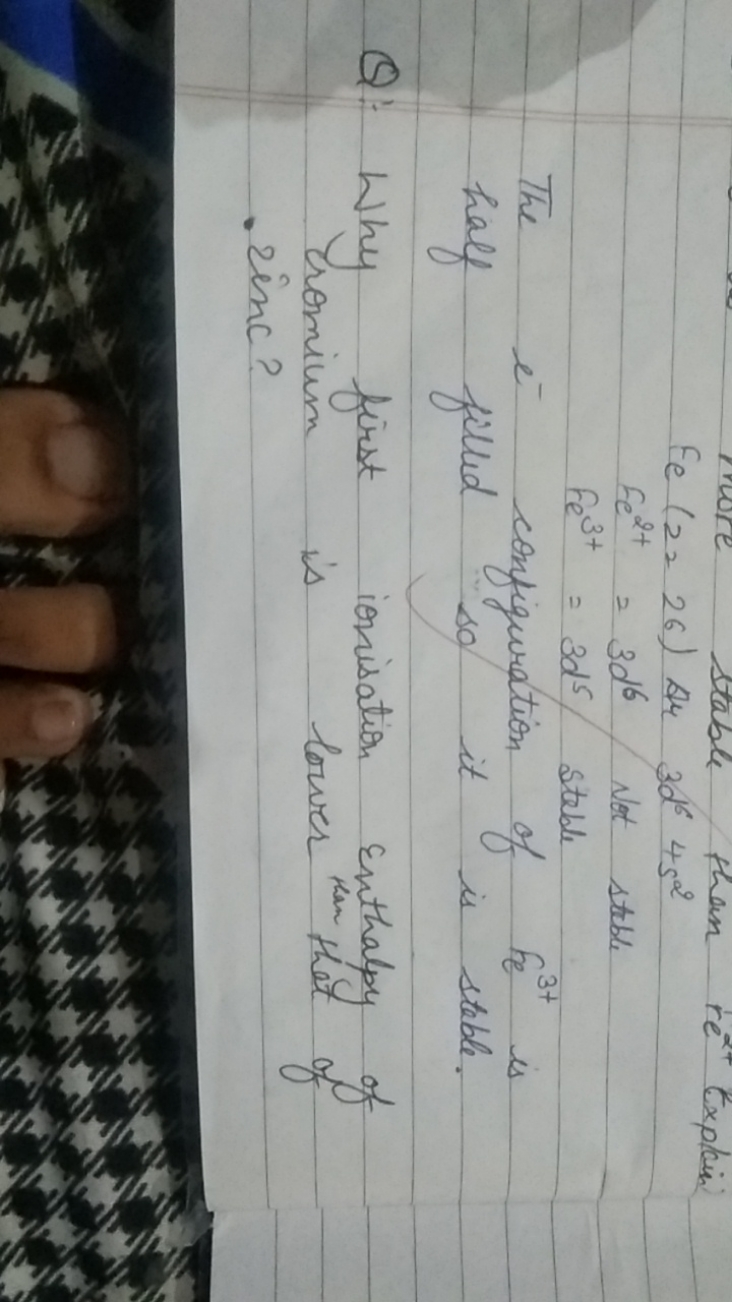 more stable than Fe2+ Explain
Fe (Z= 26) Ar 3d6 4s2
Fe2+ = 3d6 Not stable
Fe3+ = 3d5 Stable
The e- configuration of Fe3+ is
half filled so it is stable.
Q:- Why first ionisation Enthalpy of
cromium is lower than that of
zinc?